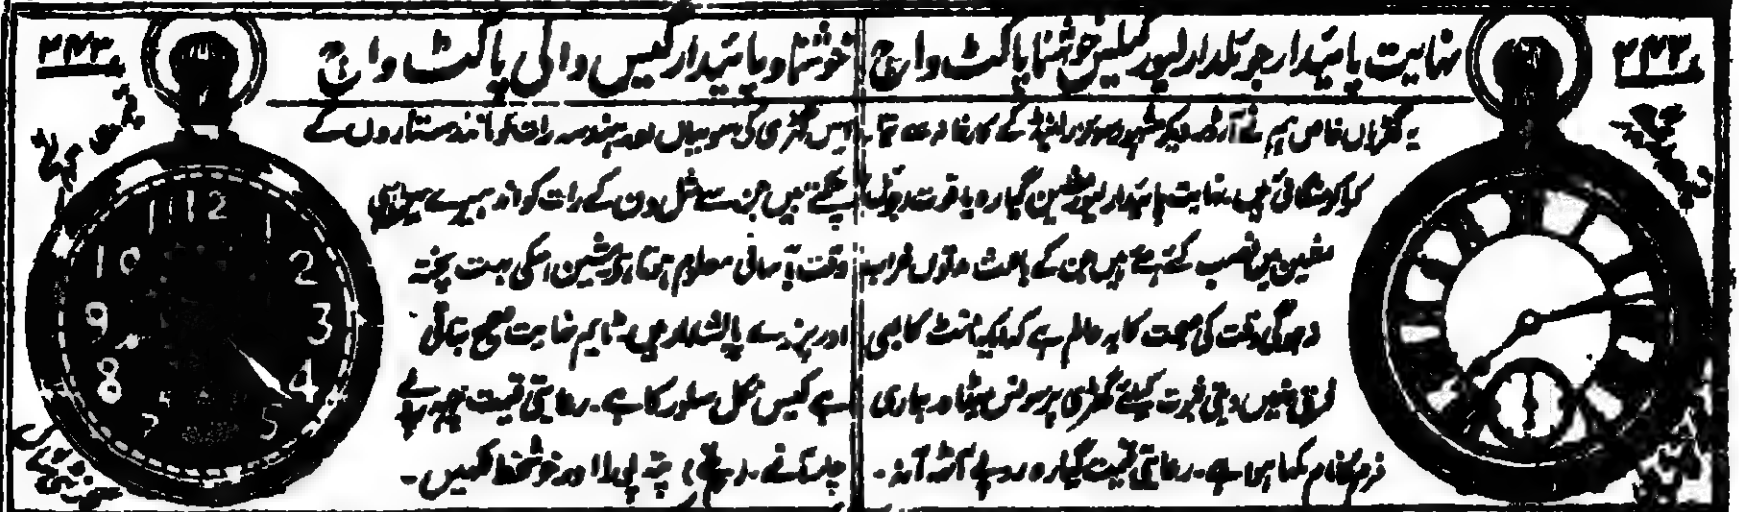 نہایت پائیدار جوئلدار لیور کیلیس خوشنما پاکٹ واچ
یہ گھڑیاں خاص ہم نے آرڈر دیکر مشہور سوئٹزرلینڈ کے کارخانہ سے تیار
کراکر منگائی ہیں۔ نہایت پائیدار لیور مشین گیارہ یاقوت (جوئل)
مشین میں نصب کئے ہوئے ہیں جن کے باعث مدتوں خراب
نہ ہوگی وقت کی صحت کا یہ عالم ہے کہ ایک منٹ کا بھی
فرق نہیں دیتی ثبوت کیلئے گھڑی پر سوئس میڈ اور ہماری
فرم کا نام لکھا ہوا ہے۔ رعایتی قیمت گیارہ روپے آٹھ آنہ۔
خوشنما و پائیدار کیس والی پاکٹ واچ
اس گھڑی کی سوئیاں اور ہندسہ رات کو مانند ستاروں کے
چمکتے ہیں جن سے مثل دن کے رات کو اندھیرے میں بھی
وقت بآسانی معلوم ہوتا ہے مشین اسکی بہت پختہ
اور پرزے پالشدار ہیں۔ ٹایم نہایت صحیح بتاتی
ہے کیس نکل سلور کا ہے۔ رعایتی قیمت چھ روپے
چار آنے۔ پتہ پورا اور خوشخط لکھیں۔
12
11
1
10
2
9
3
8
4
7
5